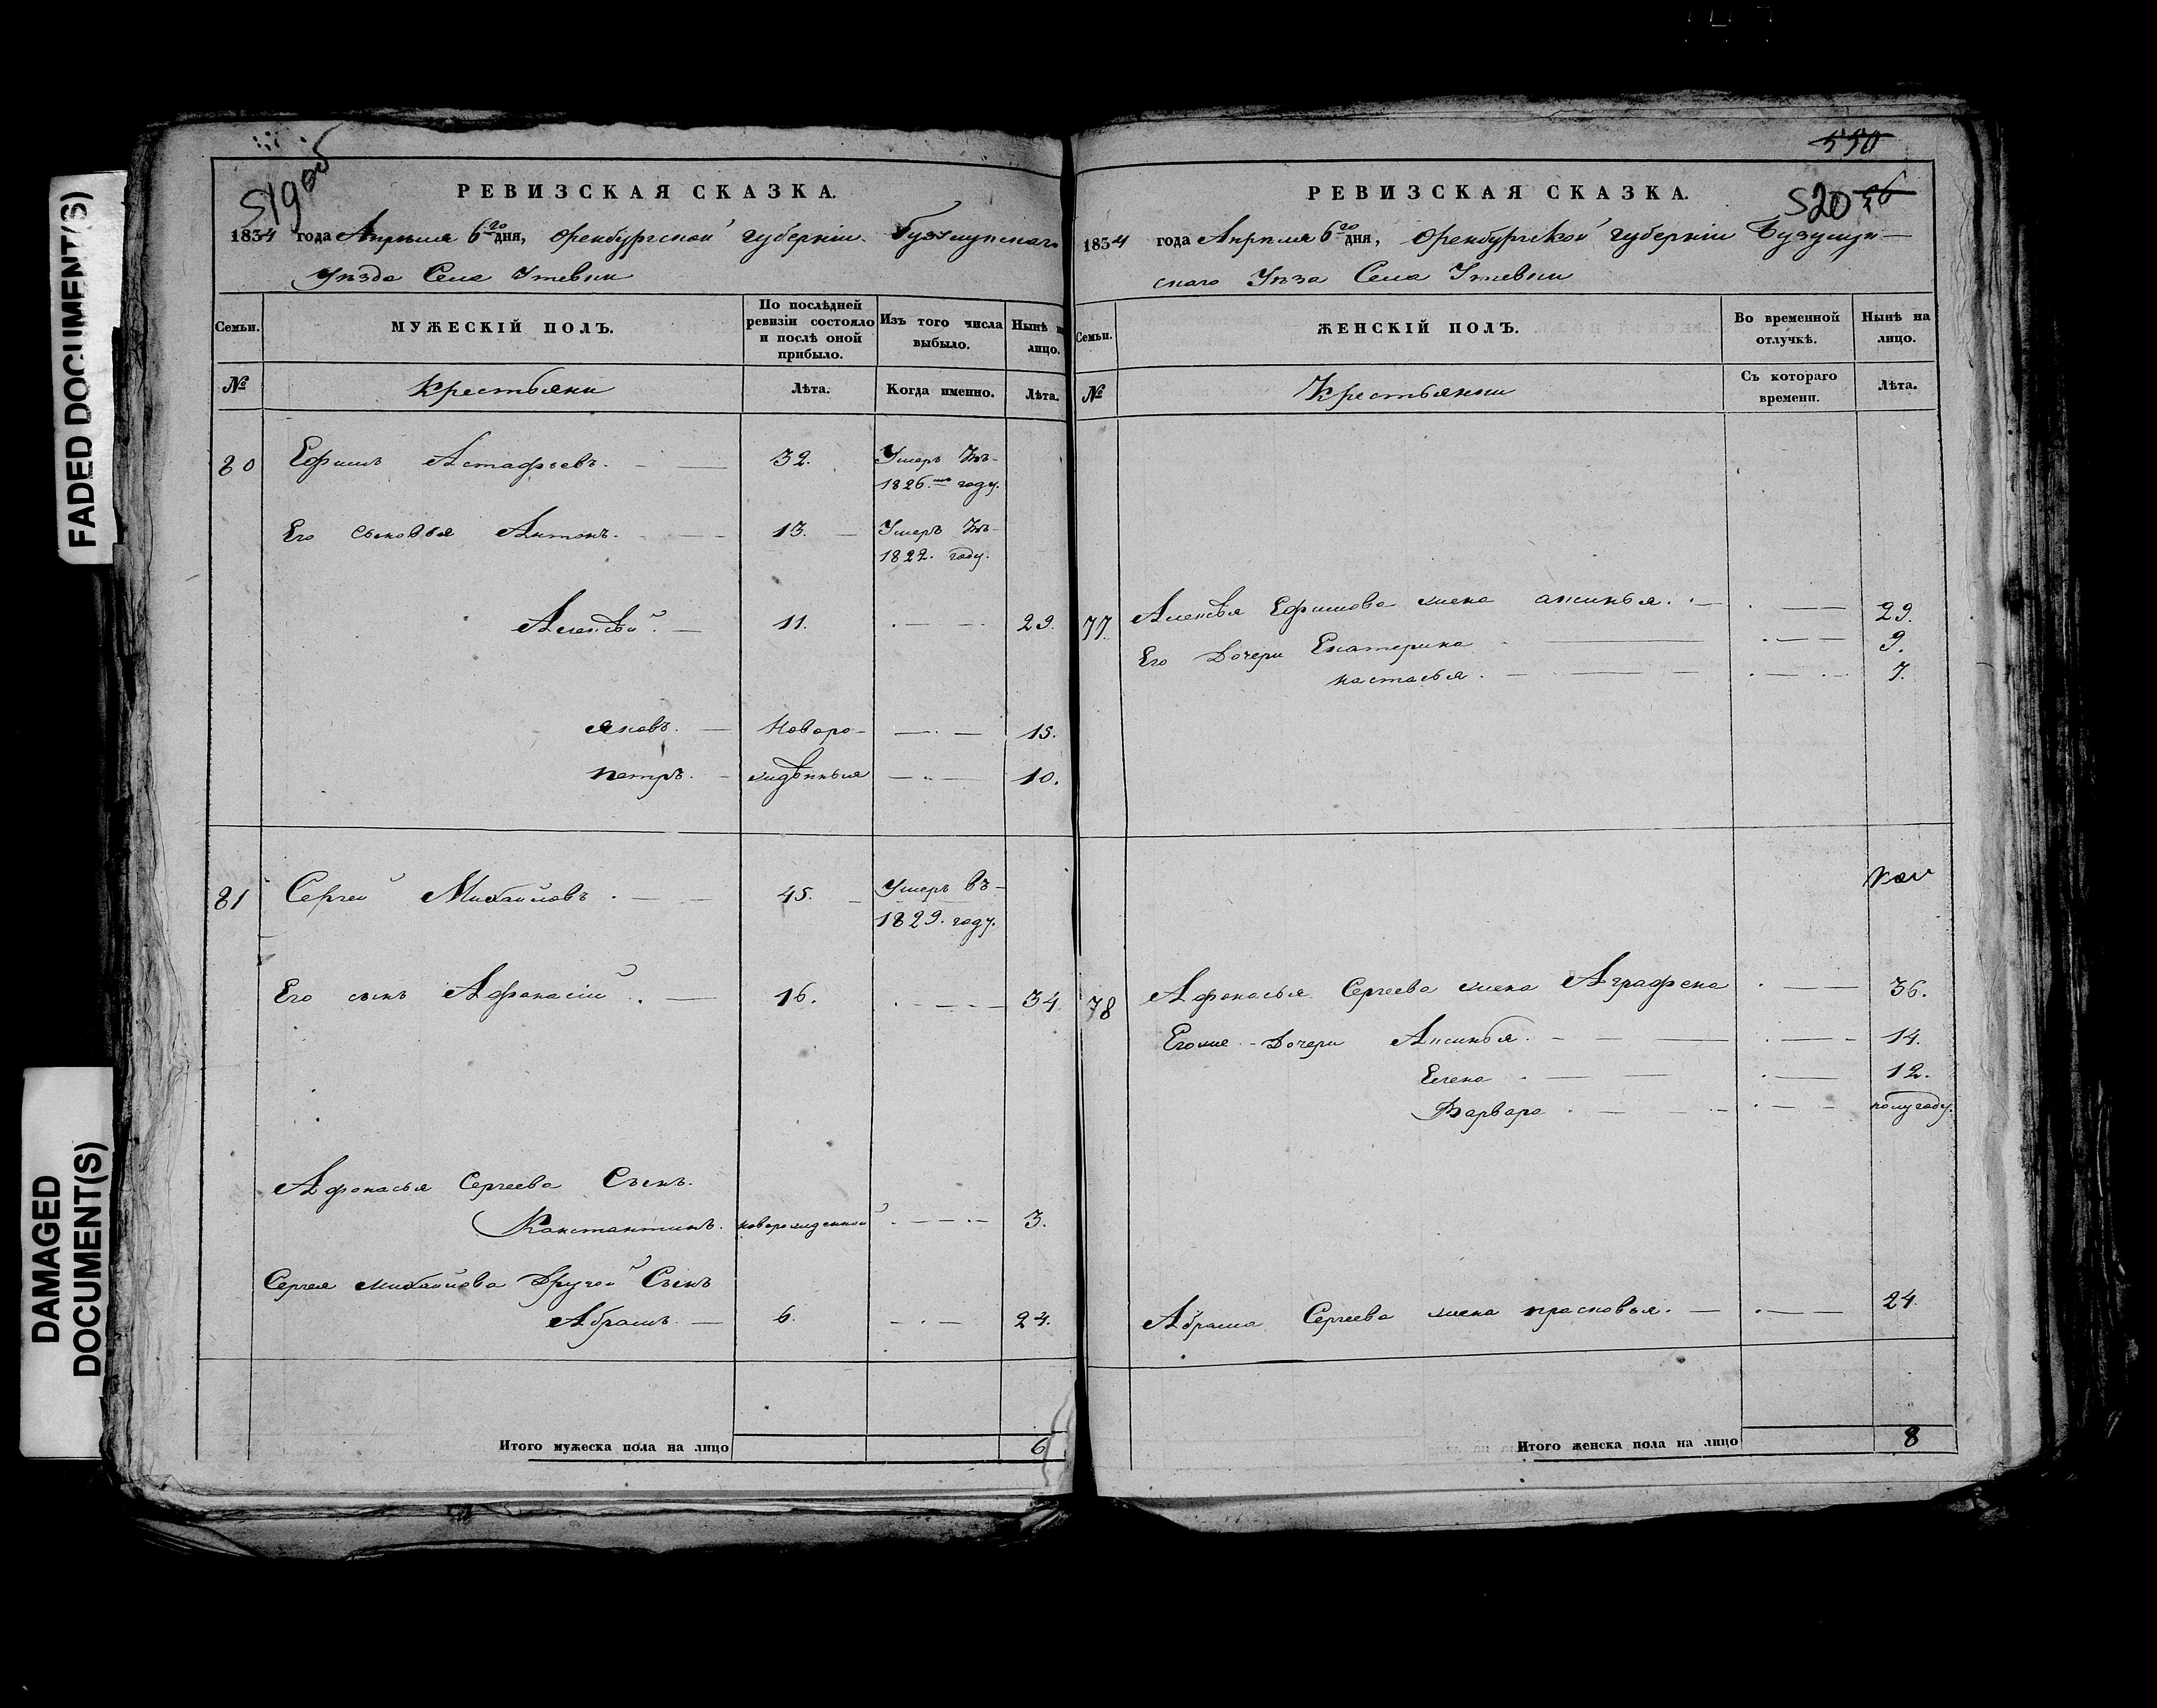 FADED DOCUMENT(S)
DAMAGED
DOCUMENT(S)
519 об
РЕВИЗСКАЯ СКАЗКА.
1834 года Апреля 6го дня, Оренбургской губернiи Бузулукскаго
Уезда Села Утевки
Семьи. МУЖЕСКIЙ ПОЛЪ. По послѣдней ревизiи состояло и послѣ оной прибыло. Изъ того числа выбыло. Нынѣ на лицо.
№ Крестьяни Лѣта. Когда именно. Лѣта.
80 Ефимъ Астафьевъ. 32. Умеръ въ
1826.мъ году.
Его сыновья Антонъ. 13. Умеръ въ
1822. году.
Алексѣй. 11. 29.
яковъ. Новоро- 15.
петръ. жидѣнныя 10.
81 Сергей Михайловъ. 45. Умеръ въ
1829. году.
Его сынъ Афонасiй. 16. 34
Афонасья Сергеева Сынъ.
Констянтинъ. новорожиденной 3.
Сергея михайлова Другой Сынъ
Абрамъ. 6. 24.
Итого мужеска пола на лицо 6
550
520
РЕВИЗСКАЯ СКАЗКА.
1834 года Апреля 6го дня, Оренбургской губернiи Бузулук-
скаго Уеза Села Утевки
Семьи. ЖЕНСКIЙ ПОЛЪ. Во временной отлучкѣ. Нынѣ на лицо.
№ Крестьянки Съ котораго времени. Лѣта.
77 Алексѣя Ефимова жена аксинья. 29.
Его Дочери Екатерина 9.
настасья. 7.
78 Афонасья Сергеева жена Аграфена 36.
Егоже Дочери Аксинья. 14.
Елена 12.
Варвара полугоду.
Абрама Сергеева жена прасковья. 24.
Итого женска пола на лицо 8